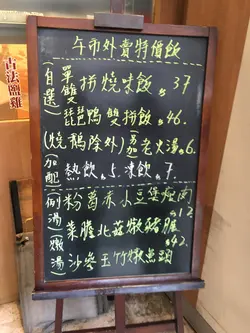 午市外賣特價飯
(自選) 單雙拼燒味飯 $37
琵琶鴨雙拼飯 $46.
(燒鵝除外) 另加老火湯 $6.
(加配) 熱飲 $5. 凍飲 $7.
(例湯) 粉葛赤小豆煲瘦肉 $12
(燉湯) 菜膽北菇燉豬𦟌 $42.
沙參玉竹燉魚頭
古法鹽雞